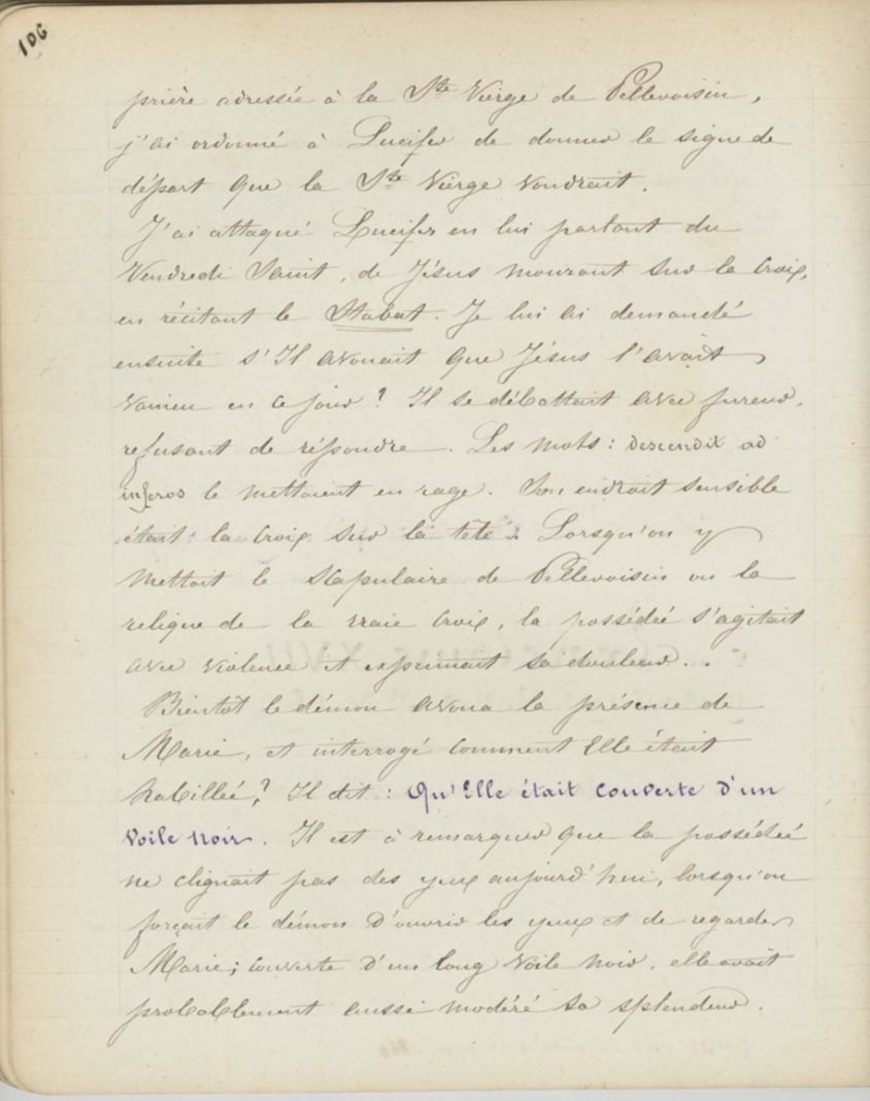 106
prière adressée à la Ste Vierge de Pellevoisin,
j'ai ordonné à Lucifer de donner le signe de
départ que la Ste Vierge voudrait.
J'ai attaqué Lucifer en lui parlant du
Vendredi Saint, de Jésus mourant sur la Croix,
en récitant le Stabat. Je lui ai demandé
ensuite s'Il avouait que Jésus l'avait
vaincu en ce jour? Il se débattait avec fureur,
refusant de répondre. Les mots: descendit ad
inferos le mettaient en rage. Son endroit sensible
était: la Croix sur la tête. Lorsqu'on y
mettait le Scapulaire de Pellevoisin ou la
relique de la vraie Croix, la possédée s'agitait
avec violence et exprimant sa douleur..
Bientôt le démon avoua la présence de
Marie, et interrogé comment Elle était
habillée? Il dit: Qu'Elle était couverte d'un
voile noir. Il est à remarquer que la possédée
ne clignait pas des yeux aujourd'hui, lorsqu'on
forçait le démon d'ouvrir les yeux et de regarder
Marie; couverte d'un long voile noir, elle avait
probablement aussi modéré sa splendeur.